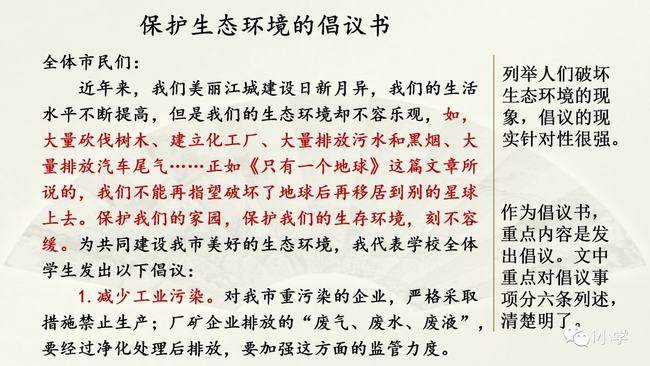 保护生态环境的倡议书
全体市民们：
近年来，我们美丽江城建设日新月异，我们的生活
水平不断提高，但是我们的生态环境却不容乐观，如，
大量砍伐树木、建立化工厂、大量排放污水和黑烟、大
量排放汽车尾气……正如《只有一个地球》这篇文章所
说的，我们不能再指望破坏了地球后再移居到别的星球
上去。保护我们的家园，保护我们的生存环境，刻不容
缓。为共同建设我市美好的生态环境，我代表学校全体
学生发出以下倡议：
1. 减少工业污染。对我市重污染的企业，严格采取
措施禁止生产；厂矿企业排放的“废气、废水、废液”，
要经过净化处理后排放，要加强这方面的监管力度。
列举人们破坏
生态环境的现
象，倡议的现
实针对性很强。
作为倡议书，
重点内容是发
出倡议。文中
重点对倡议事
项分六条列述，
清楚明了。
i小学